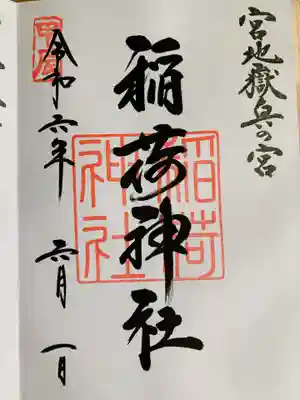 宮地嶽兵の宮
稲荷神社
稲荷神社
甲辰
令和六年 六月 一日